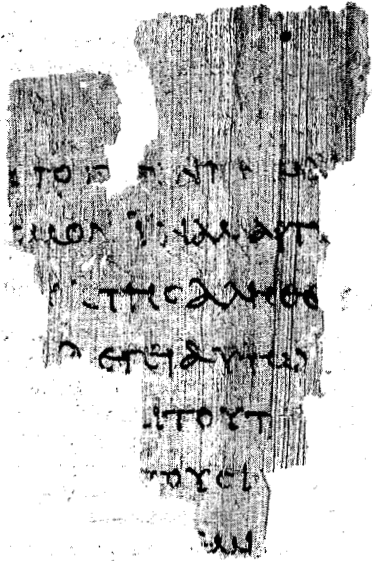 ΤΟ Γ ΓΕΝΝΗΜΑΙ
ϹΜΟΝ ΙΝΑ ΜΑΡΤΥ
Κ ΤΗϹ ΑΛΗΘΕ
ΛΕΓΕΙ ΑΥΤΩ
ΑΙ ΤΟΥΤ
ΤΟΥϹ Ι
ΜΙ